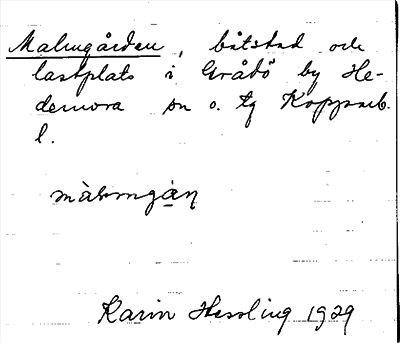 Malmgården, båtstad och
lastplats i Gråbö by He-
demora sn o. tg Kopparb.
l.
màlmgàn̥
Karin Hessling 1929